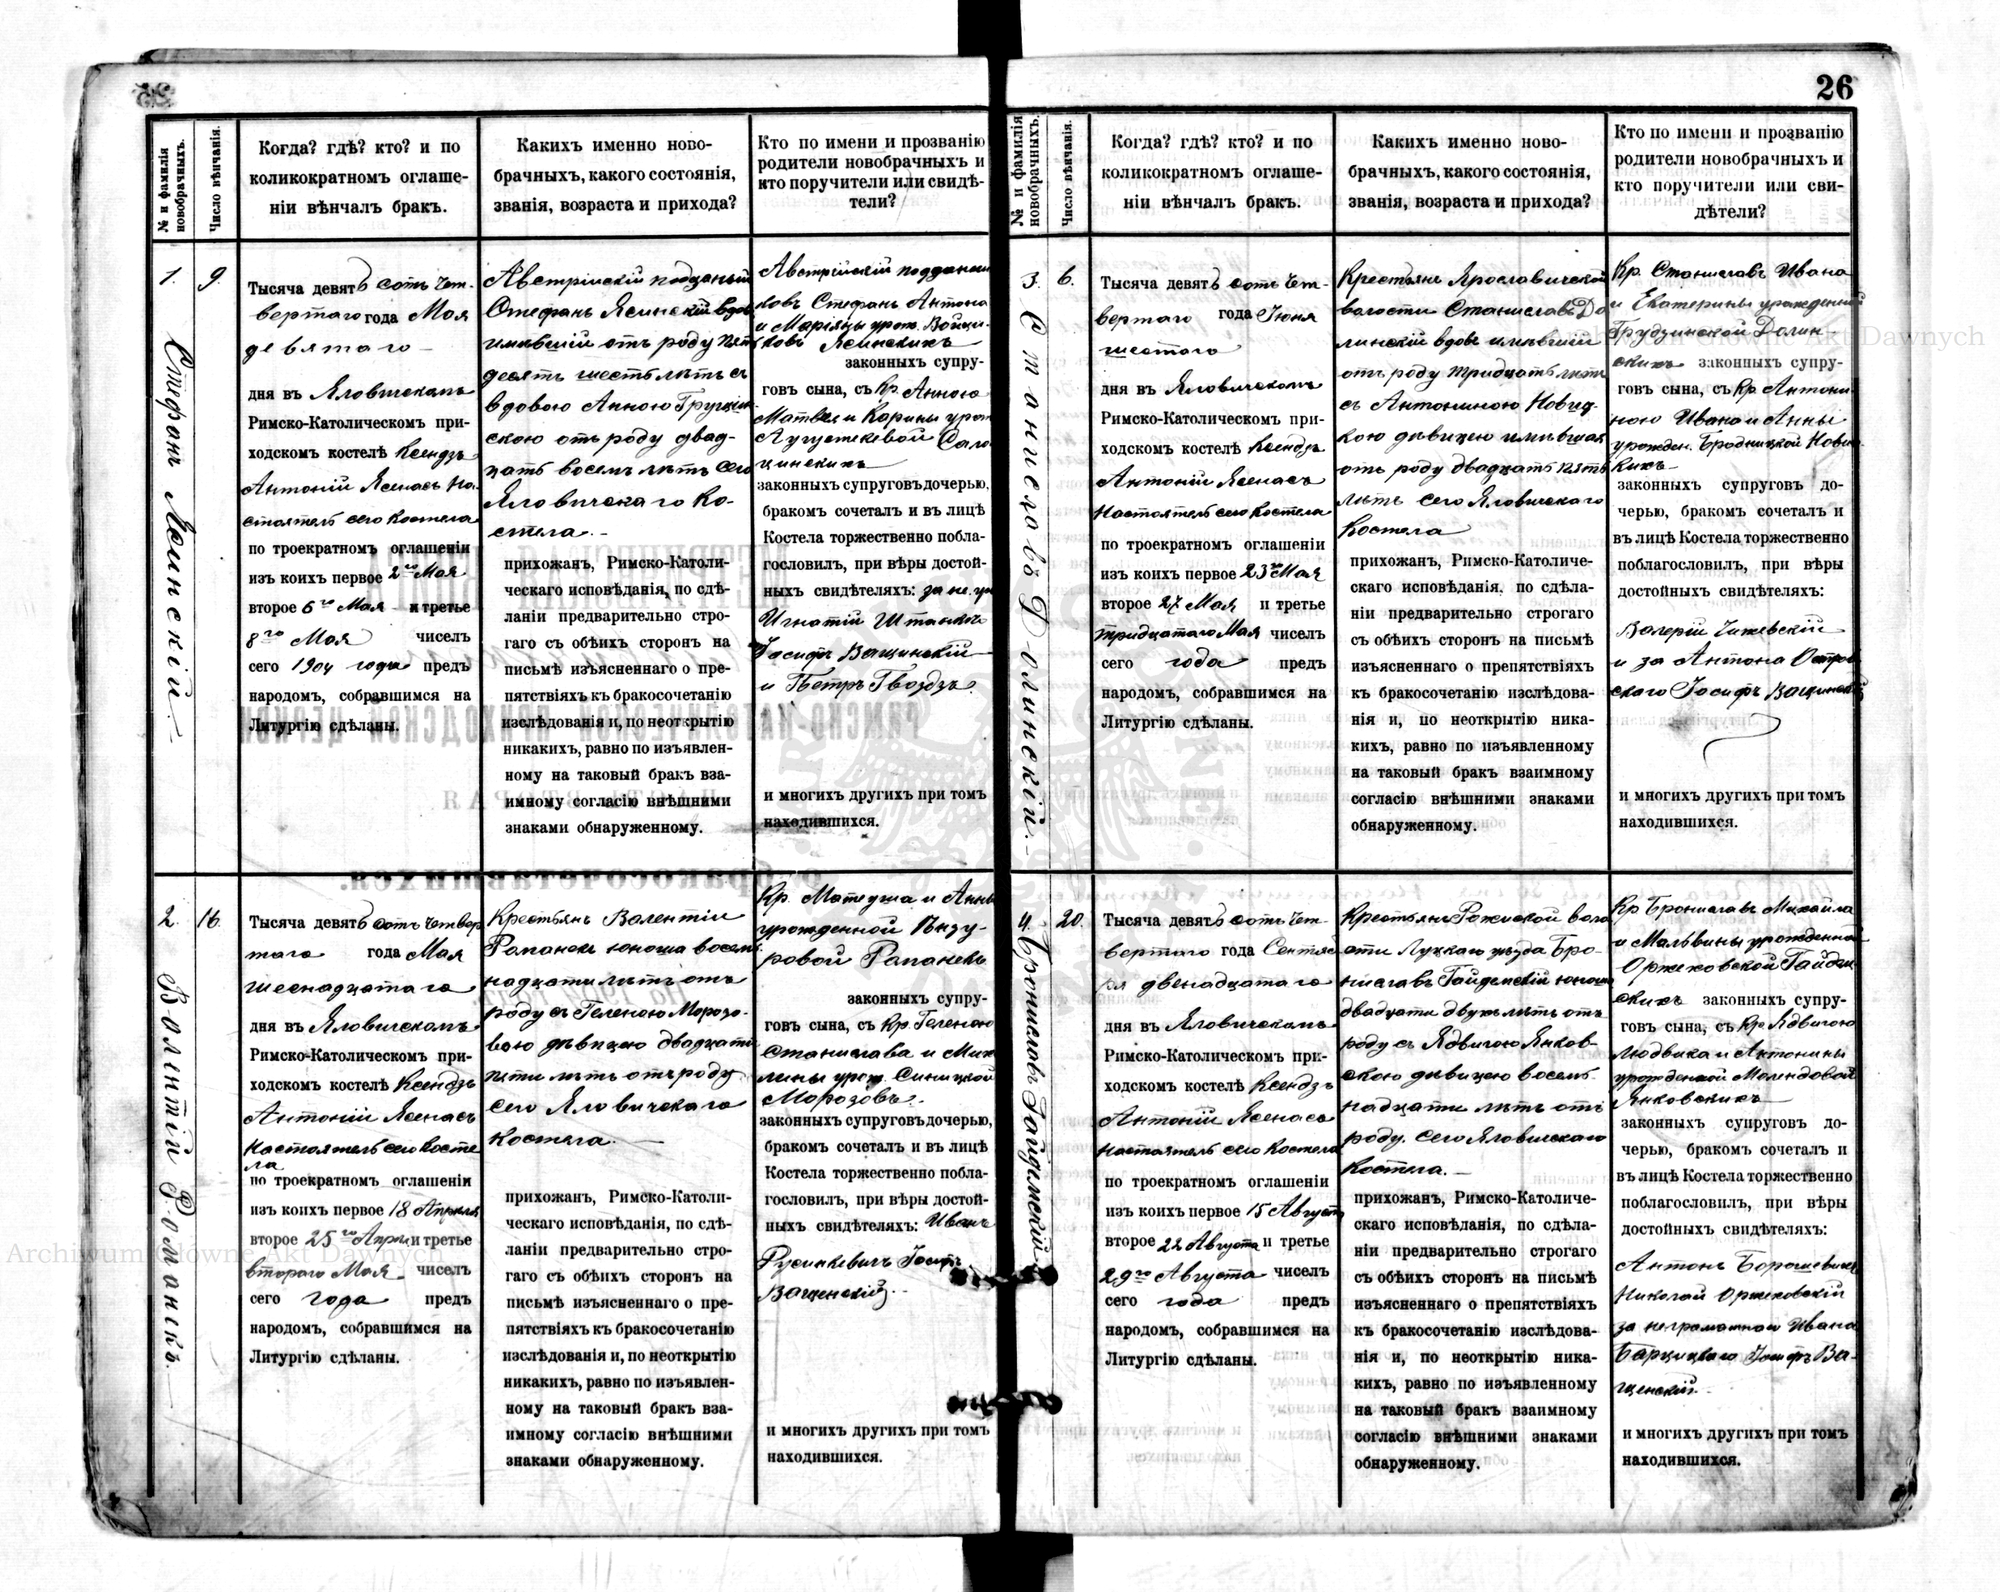 26
№ и фамилія новобрачныхъ.
Число вѣнчанія.
Когда? гдѣ? кто? и по
коликократномъ оглаше-
ніи вѣнчалъ бракъ.
Какихъ именно ново-
брачныхъ, какого состоянія,
званія, возраста и прихода?
Кто по имени и прозванію
родители новобрачныхъ и
кто поручители или свидѣ-
тели?
1.
Стефанъ Ясинскій.
9.
Тысяча девятьсотъ чет-
вертаго года Мая
девятаго
дня въ Яловичскомъ
Римско-Католическомъ при-
ходскомъ костелѣ Ксендзъ
Антоній Ясенасъ На-
стоятель сего Костела
по троекратномъ оглашеніи
изъ коихъ первое 2го Мая
второе 6го Мая и третье
8го Мая чиселъ
сего 1904 года предъ
народомъ, собравшимся на
Литургію сдѣланы.
Австрійскій подданый
Стефанъ Ясинскій вдов
имѣвшій отъ роду пять
десять шесть лѣтъ съ
вдовою Анною
скою отъ роду двад-
цать восемь лѣтъ сего
Яловичскаго Ко-
стела.
прихожанъ, Римско-Католи-
ческаго исповѣданія, по сдѣ-
ланіи предварительно стро-
гаго съ обѣихъ сторонъ на
письмѣ изъясненнаго о пре-
пятствіяхъ къ бракосочетанію
изслѣдованія и, по неоткрытію
никакихъ, равно по изъявлен-
ному на таковый бракъ вза-
имному согласію внѣшними
знаками обнаруженному.
Австрійскій поддан
ковъ Стефанъ Антона
и Маріяны урож. Войци-
ковъ Ясинскихъ
законныхъ супру-
говъ сына, съ Кр. Анною
Матвея и Карины урож
законныхъ супруговъ дочерью,
бракомъ сочеталъ и въ лицѣ
Костела торжественно побла-
гословилъ, при вѣры достой-
ныхъ свидѣтеляхъ: за не гр
Игнатій Штанко
Іосифъ Ващинскій
и Петръ Гвоздъ.
и многихъ другихъ при томъ
находившихся.
2.
Валентій Романѣкъ.
16.
Тысяча девятьсотъ четвер
таго года Мая
шеснадцатаго
дня въ Яловичскомъ
Римско-Католическомъ при-
ходскомъ костелѣ Ксендзъ
Антоній Ясенасъ
Настоятель сего Косте
ла
по троекратномъ оглашеніи
изъ коихъ первое 18 Апреля
второе 25го Апрел и третье
втораго Мая чиселъ
сего года предъ
народомъ, собравшимся на
Литургію сдѣланы.
Крестьянъ Валентіи
юноша восем
надцати лѣтъ отъ
роду съ Геленою Морозо-
вою дѣвицею двадцати
пяти лѣтъ отъ роду
сего Яловичскаго
Костела.
прихожанъ, Римско-Католи-
ческаго исповѣданія, по сдѣ-
ланіи предварительно стро-
гаго съ обѣихъ сторонъ на
письмѣ изъясненнаго о пре-
пятствіяхъ къ бракосочетанію
изслѣдованія и, по неоткрытію
никакихъ, равно по изъявлен-
ному на таковый бракъ вза-
имному согласію внѣшними
знаками обнаруженному.
Кр. Матеуша и Анны
урожденной
законныхъ супру-
говъ сына, съ Кр. Геленою
Станислава и
урож. Синицкой
Морозовъ.
законныхъ супруговъ дочерью,
бракомъ сочеталъ и въ лицѣ
Костела торжественно побла-
гословилъ, при вѣры достой-
ныхъ свидѣтеляхъ: Иванъ
Русинкевичъ Іосифъ
Ващенскій.
и многихъ другихъ при томъ
находившихся.
№ и фамилія новобрачныхъ.
Число вѣнчанія.
Когда? гдѣ? кто? и по
коликократномъ оглаше-
ніи вѣнчалъ бракъ.
Какихъ именно ново-
брачныхъ, какого состоянія,
званія, возраста и прихода?
Кто по имени и прозванію
родители новобрачныхъ и
кто поручители или сви-
дѣтели?
3.
Станиславъ Долинскій.
6.
Тысяча девятьсотъ чет-
вертаго года Іюня
шестого
дня въ Яловичскомъ
Римско-Католическомъ при-
ходскомъ костелѣ Ксендзъ
Антоній Ясенасъ
Настоятель сего Костела
по троекратномъ оглашеніи
изъ коихъ первое 23го Мая
второе 27 Мая и третье
тридцатаго Мая чиселъ
сего года предъ
народомъ, собравшимся на
Литургію сдѣланы.
Крестьянъ Ярославичской
волости Станиславъ До
линскій вдовъ имѣвшій
отъ роду тридцать лѣтъ
съ Антониною Новиц-
кою дѣвицею имѣвшая
отъ роду двадцать пять
лѣтъ сего Яловичскаго
Костела
прихожанъ, Римско-Католиче-
скаго исповѣданія, по сдѣла-
ніи предварительно строгаго
съ обѣихъ сторонъ на письмѣ
изъясненнаго о препятствіяхъ
къ бракосочетанію изслѣдова-
нія и, по неоткрытію ника-
кихъ, равно по изъявленному
на таковый бракъ взаимному
согласію внѣшними знаками
обнаруженному.
Кр. Станиславъ Ивана
и Екатерины урожденной
Грудзинской Долин-
скихъ законныхъ супру-
говъ сына, съ Кр. Антони-
ною Ивана и Анны
урожден. Бродницкой Новиц
кихъ
законныхъ супруговъ до-
черью, бракомъ сочеталъ и
въ лицѣ Костела торжественно
поблагословилъ, при вѣры
достойныхъ свидѣтеляхъ:
Валерій Чижевскій
и за Антона Остров
скаго Іосифъ Ващинскій
и многихъ другихъ при томъ
находившихся.
4.
Брониславъ Гайдемскій
20.
Тысяча девятьсотъ чет-
вертаго года Сентяб
ря двенадцатаго
дня въ Яловичскомъ
Римско-Католическомъ при-
ходскомъ костелѣ Ксендзъ
Антоній Ясенасъ
Настоятель сего Костела
по троекратномъ оглашеніи
изъ коихъ первое 15 Августа
второе 22 Августа и третье
29го Августа чиселъ
сего года предъ
народомъ, собравшимся на
Литургію сдѣланы.
Крестьянъ Рожиской воло
сти Луцкаго уѣзда Бро-
ниславъ Гайдемскій юноша
двадцати двухъ лѣтъ отъ
роду съ Ядвигою Янков-
скою дѣвицею восем-
надцати лѣтъ отъ
роду. сего Яловичскаго
Костела.
прихожанъ, Римско-Католиче-
скаго исповѣданія, по сдѣла-
ніи предварительно строгаго
съ обѣихъ сторонъ на письмѣ
изъясненнаго о препятствіяхъ
къ бракосочетанію изслѣдова-
нія и, по неоткрытію ника-
кихъ, равно по изъявленному
на таковый бракъ взаимному
согласію внѣшними знаками
обнаруженному.
Кр Брониславъ Михайла
и Мальвины урожденной
Оржеховской Гайдем
скихъ законныхъ супру-
говъ сына, съ Кр. Ядвигою
Людвика и Антонины
урожденной Молендовой
Янковскихъ
законныхъ супруговъ до-
черью, бракомъ сочеталъ и
въ лицѣ Костела торжественно
поблагословилъ, при вѣры
достойныхъ свидѣтеляхъ:
Антонъ
Николай Оржеховскій
за неграмотнаго Ивана
Барщицкаго Іосифъ Ва-
щенскій.
и многихъ другихъ при томъ
находившихся.
Archiwum Główne Akt Dawnych
Archiwum Główne Akt Dawnych